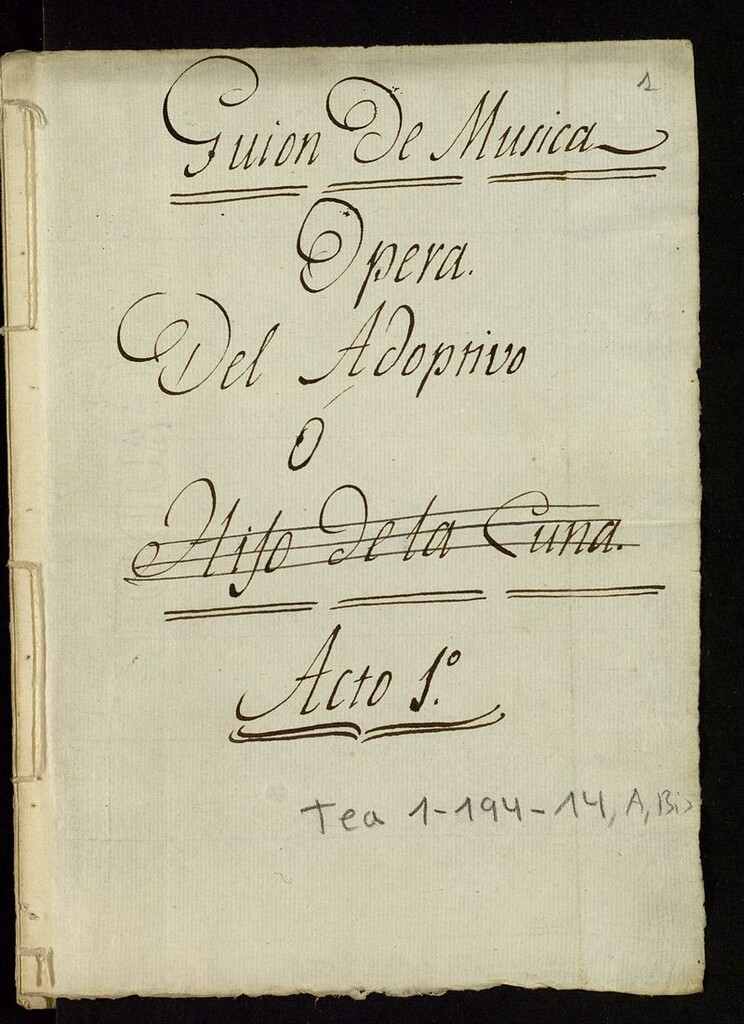 1
Guion De Musica
Opera.
Del Adoptivo
Ó
Hijo de la Cuna.
Acto 1.º
Tea 1-194-14, A, Bis